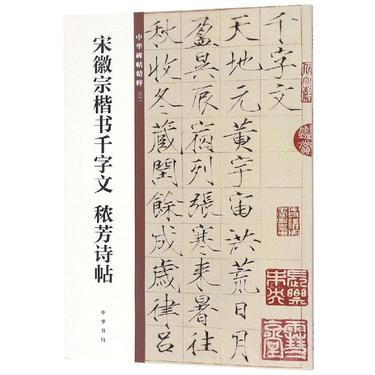 宋徽宗楷书千字文 秾芳诗帖
中华书局
中华碑帖精粹
千字文
天地元黃宇宙洪荒日月
盈昃辰宿列張寒来暑往
秋收冬藏閏餘成歲律吕